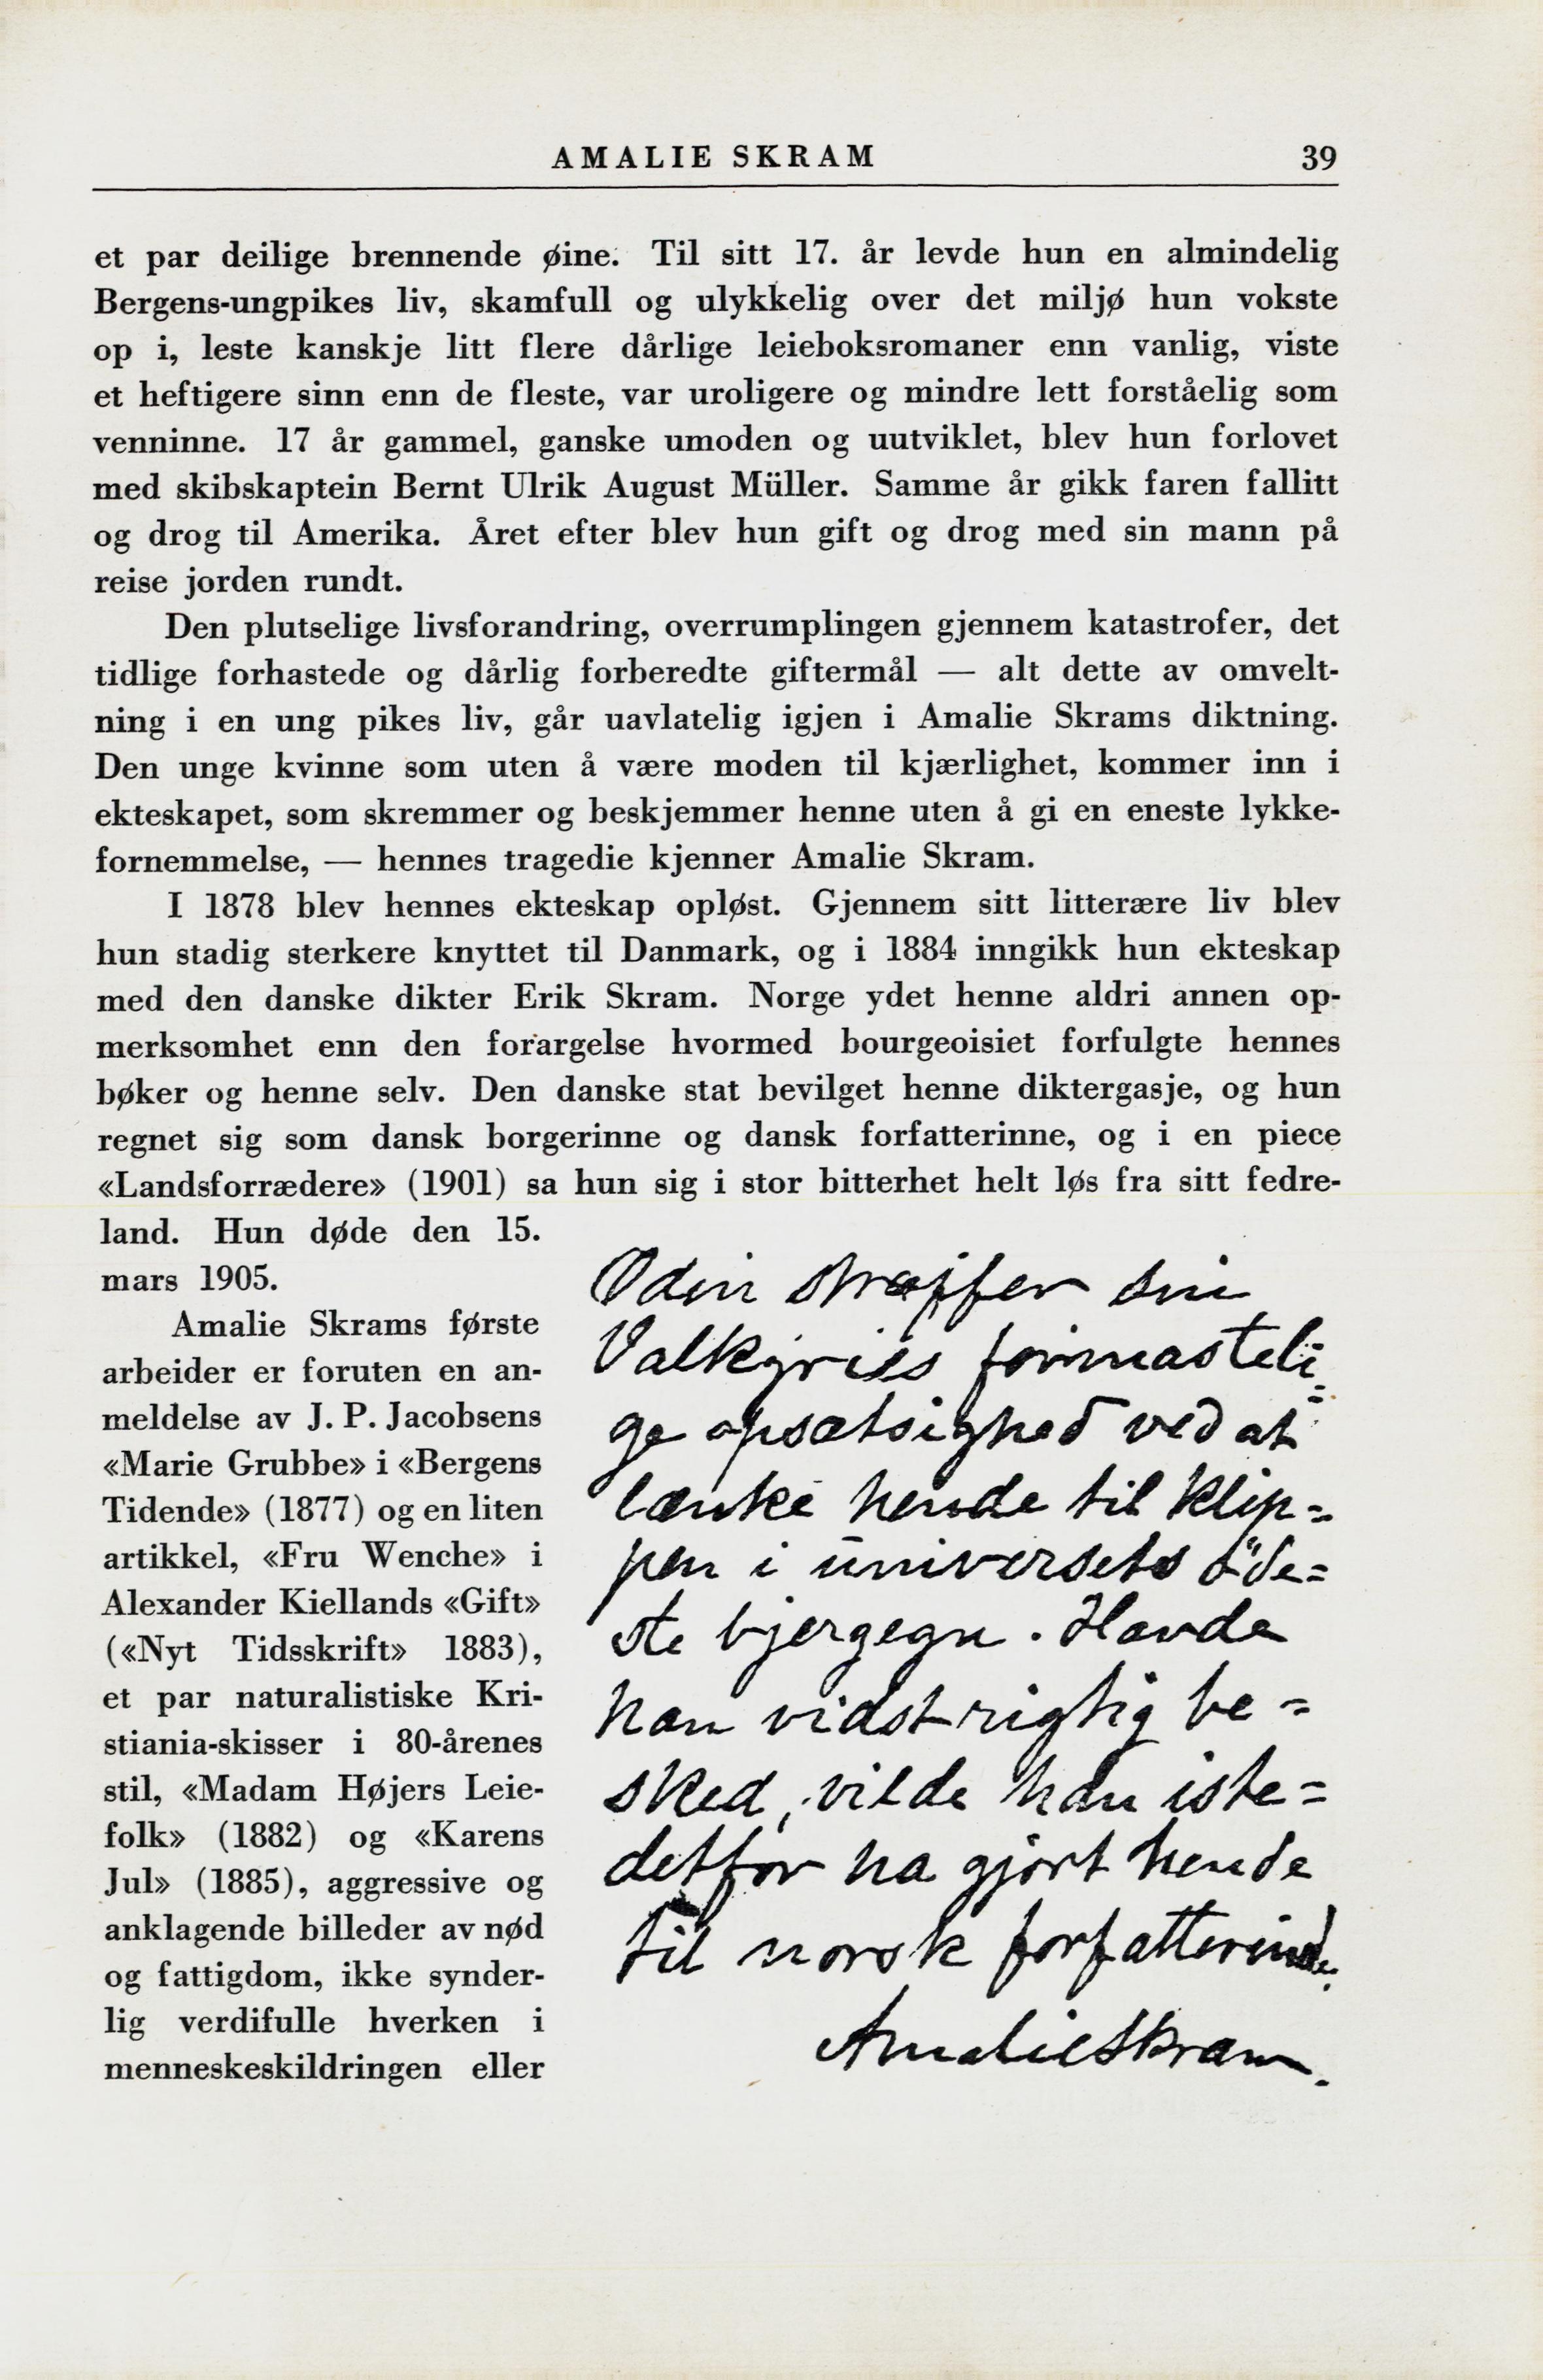 AMALIE SKRAM 39
et par deilige brennende øine. Til sitt 17. år levde hun en almindelig
Bergens-ungpikes liv, skamfull og ulykkelig over det miljø hun vokste
op i, leste kanskje litt flere dårlige leieboksromaner enn vanlig, viste
et heftigere sinn enn de fleste, var uroligere og mindre lett forståelig som
venninne. 17 år gammel, ganske umoden og uutviklet, blev hun forlovet
med skibskaptein Bernt Ulrik August Müller. Samme år gikk faren fallitt
og drog til Amerika. Året efter blev hun gift og drog med sin mann på
reise jorden rundt.
Den plutselige livsforandring, overrumplingen gjennem katastrofer, det
tidlige forhastede og dårlig forberedte giftermål — alt dette av omvelt-
ning i en ung pikes liv, går uavlatelig igjen i Amalie Skrams diktning.
Den unge kvinne som uten å være moden til kjærlighet, kommer inn i
ekteskapet, som skremmer og beskjemmer henne uten å gi en eneste lykke-
fornemmelse, — hennes tragedie kjenner Amalie Skram.
I 1878 blev hennes ekteskap opløst. Gjennem sitt litterære liv blev
hun stadig sterkere knyttet til Danmark, og i 1884 inngikk hun ekteskap
med den danske dikter Erik Skram. Norge ydet henne aldri annen op-
merksomhet enn den forargelse hvormed bourgeoisiet forfulgte hennes
bøker og henne selv. Den danske stat bevilget henne diktergasje, og hun
regnet sig som dansk borgerinne og dansk forfatterinne, og i en piece
«Landsforrædere» (1901) sa hun sig i stor bitterhet helt løs fra sitt fedre-
land. Hun døde den 15.
mars 1905.
Amalie Skrams første
arbeider er foruten en an-
meldelse av J. P. Jacobsens
«Marie Grubbe» i «Bergens
Tidende» (1877) og en liten
artikkel, «Fru Wenche» i
Alexander Kiellands «Gift»
(«Nyt Tidsskrift» 1883),
et par naturalistiske Kri-
stiania-skisser i 80-årenes
stil, «Madam Højers Leie-
folk» (1882) og «Karens
Jul» (1885), aggressive og
anklagende billeder av nød
og fattigdom, ikke synder-
lig verdifulle hverken i
menneskeskildringen eller
Odin straffer sin
Valkyries formasteli=
ge opsætsighed ved at
lænke hende til klip=
pen i universets öde=
ste bjergegn. Havde
han vidst rigtig be=
sked, vilde han iste=
detfor ha gjort hende
til norsk forfatterinde.
Amalie Skram.